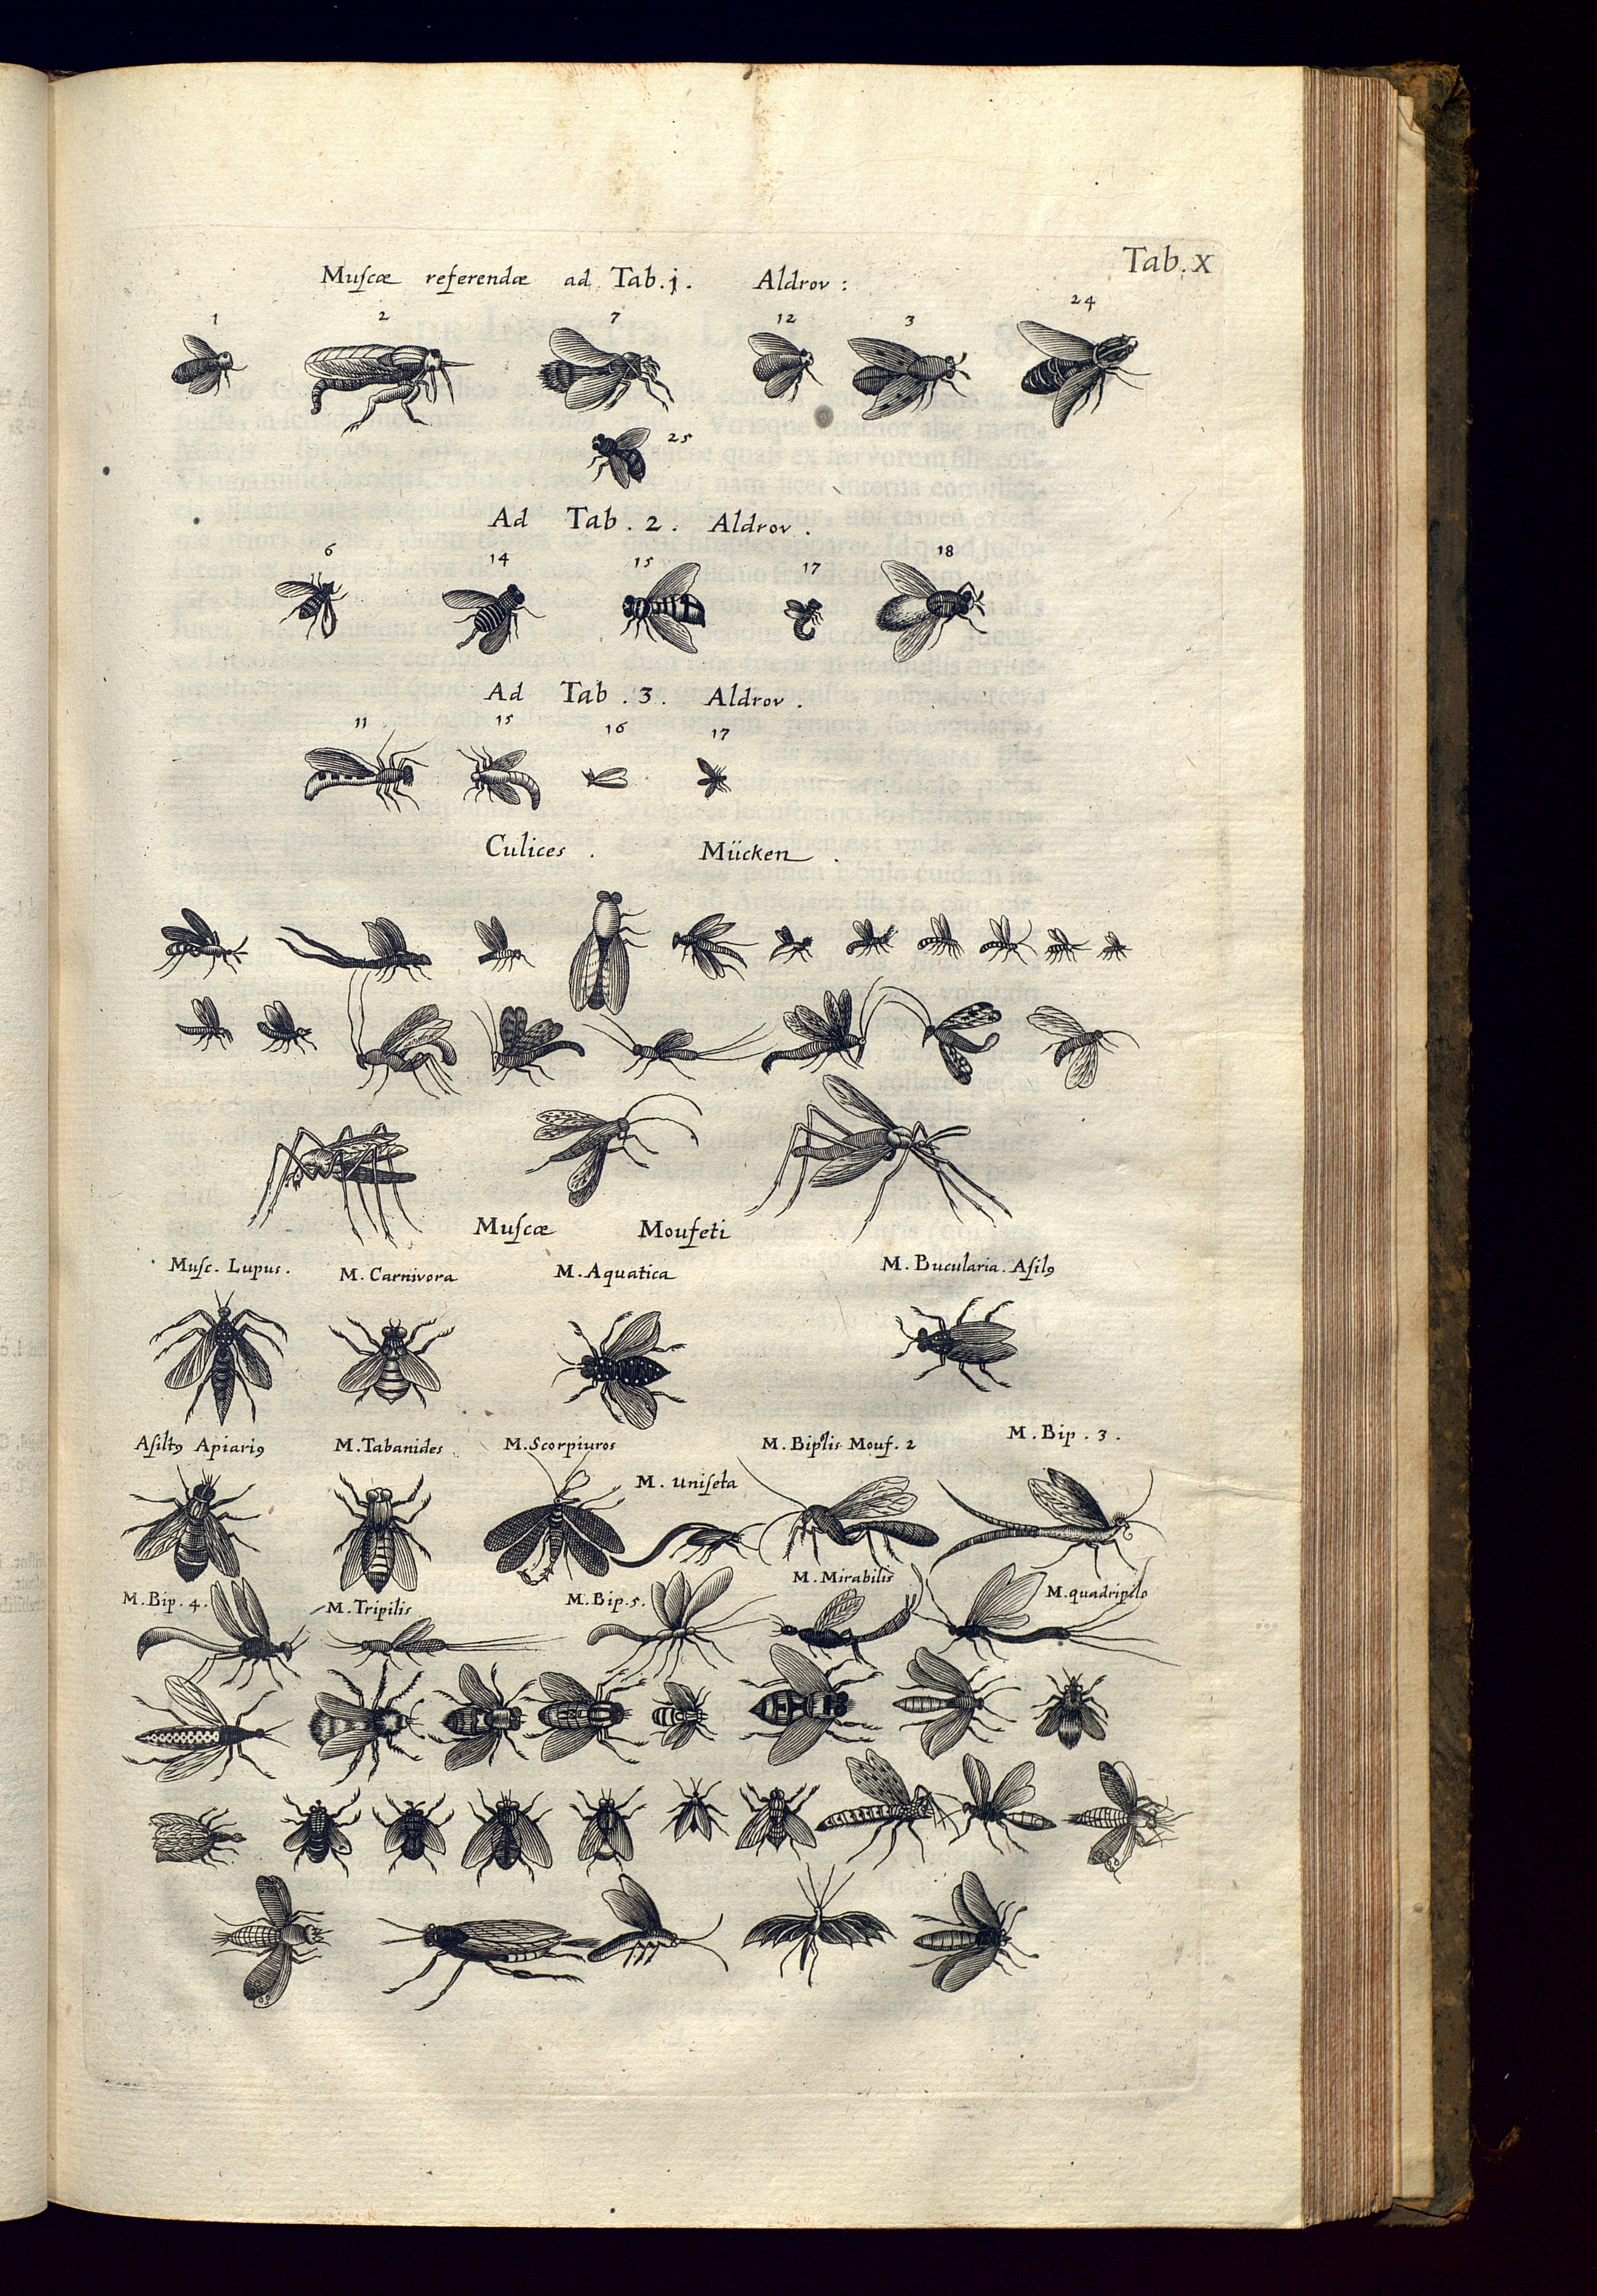 Tab. X
Muſcæ referendæ ad Tab. j. Aldrov :
1 2 7 12 3 24
25
Ad Tab . 2 . Aldrov .
6 14 15 17 18
Ad Tab . 3 . Aldrov .
11 15 16 17
Culices . Mücken .
Muſcæ Moufeti
Muſc. Lupus . M. Carnivora M. Aquatica M. Bucularia. Aſilꝰ
Aſiltꝰ Apiariꝰ M. Tabanides . M. Scorpiuros M. Biplis Mouf. 2 M. Bip . 3 .
M. Uniſeta
M. Bip. 4 . M. Tripilis M. Bip. 5 . M. Mirabilis M. quadripilo